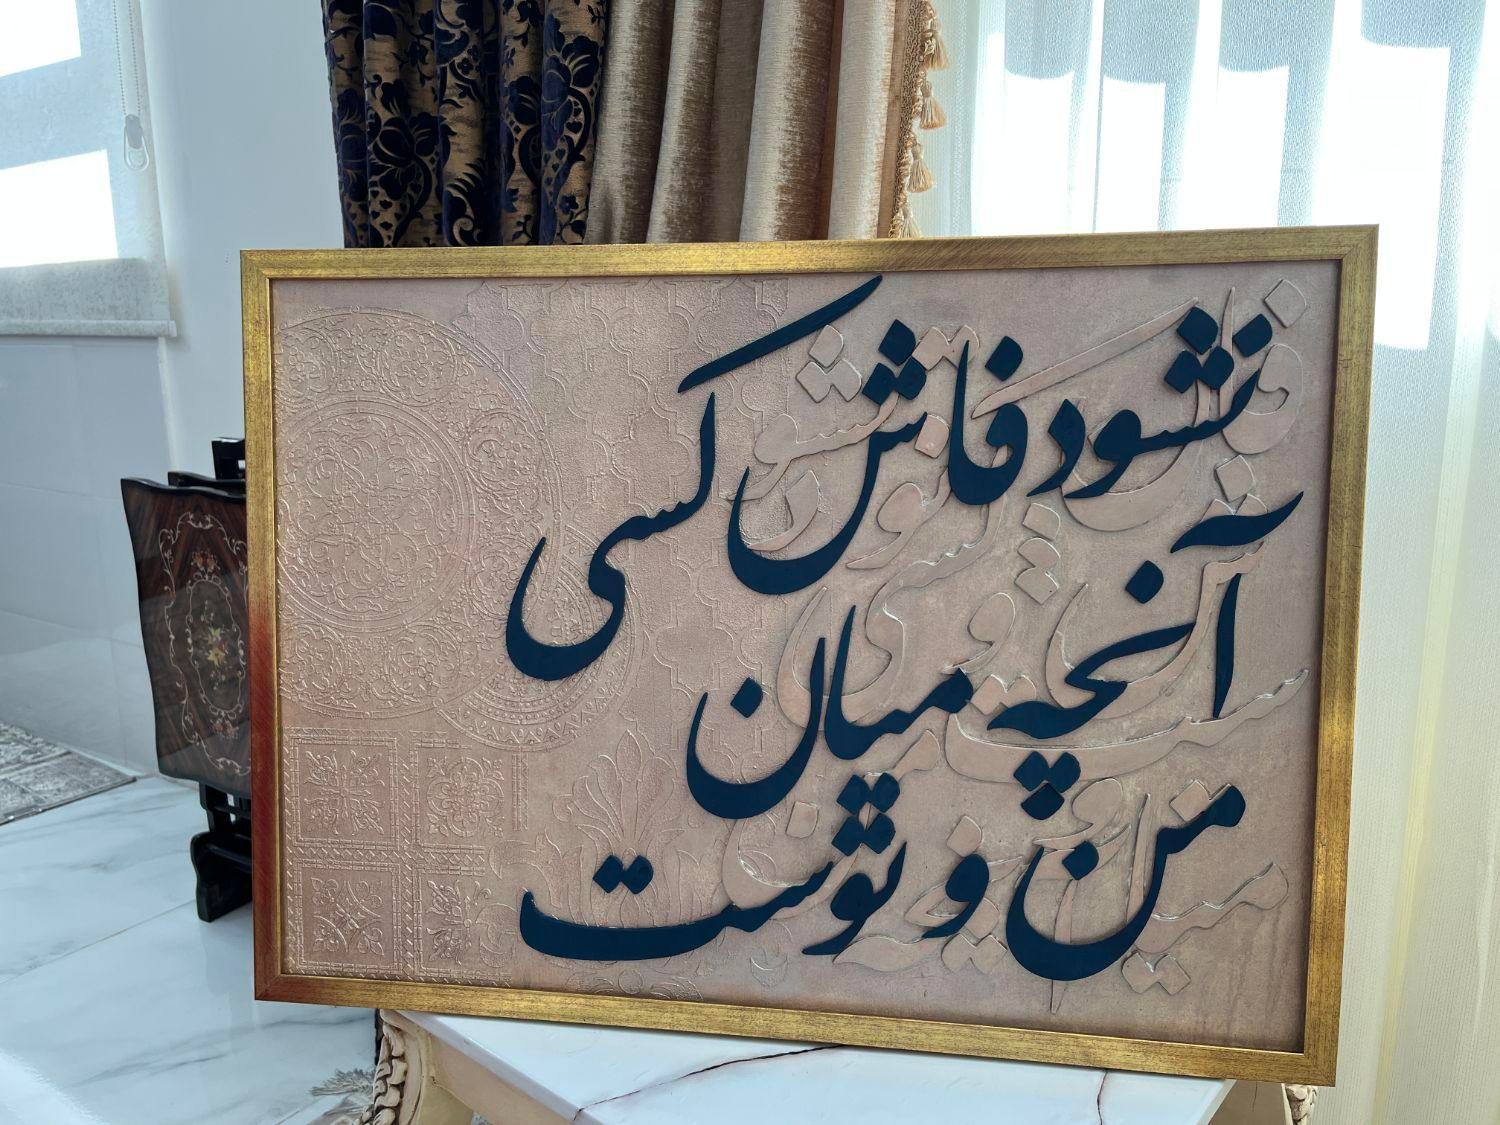 نشود فاش کسی
آنچه میان
من و توست